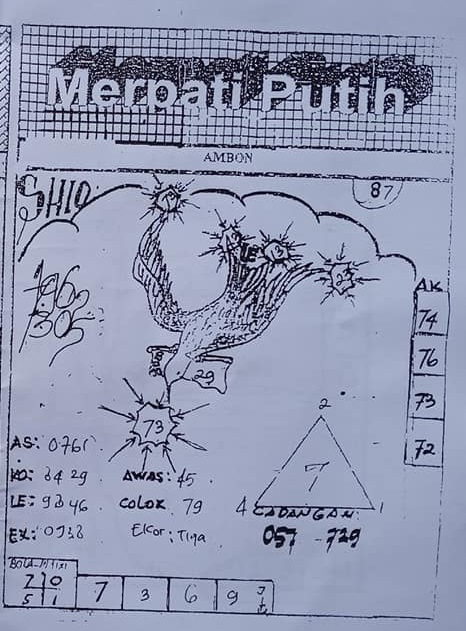 Merpati Putih
AMBON
SHIO
87
LE
AK
74
76
73
72
29
73
2
7
4
1
AS: 0761
KO: 8429
AWAS: 45
LE: 9846
COLOK 79
CADANGAN
057 - 729
EKOR: Tiga
7 0
5 1
7 3 6 9